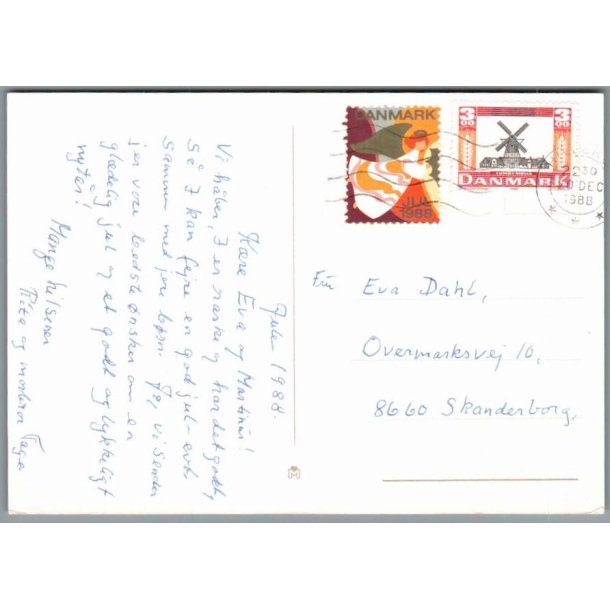 Julen 1988.
Kære Eva og Martinus!
Vi håber, I er raske og har det godt,
så I kan fejre en god jul - evt.
sammen med jere børn. Ja, vi sender
jer vore bedste ønsker om en
glædelig jul og et godt og lykkeligt
nytår!
Mange hilsener
og morbror Tage
DANMARK
JUL
1988
3 00
3 00
DANMARK
DEC
1988
Fru Eva Dahl,
Overmarksvej 10,
8660 Skanderborg,
M